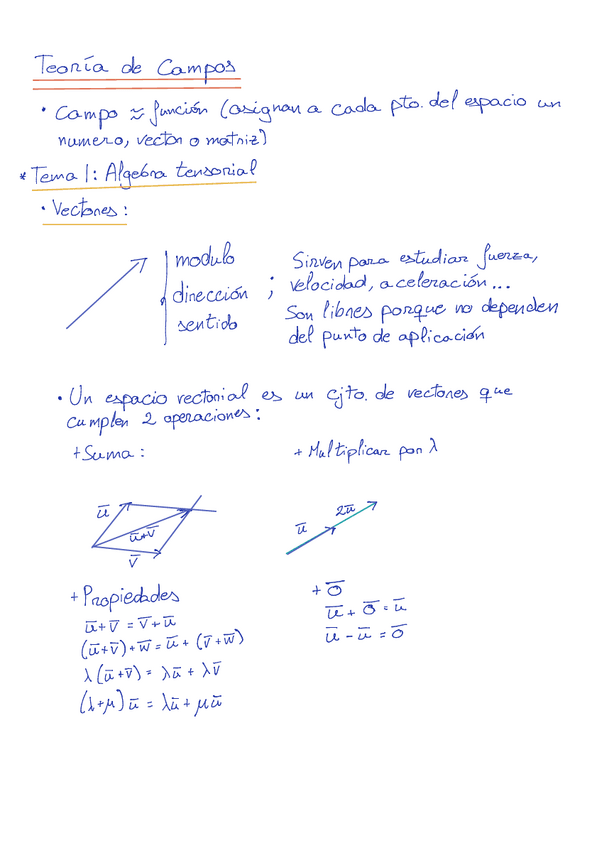 Teoría de Campos
• Campo ≈ función (asignan a cada pto. del espacio un
numero, vector o matriz)
* Tema 1: Algebra tensorial
• Vectores:
modulo
dirección
sentido
;
Sirven para estudiar fuerza,
velocidad, aceleración...
Son libres porque no dependen
del punto de aplicación
• Un espacio vectorial es un cjto. de vectores que
cumplen 2 operaciones:
+ Suma:
+ Multiplicar por λ
u̅
u̅+v̅
v̅
u̅
2u̅
+ Propiedades
u̅+v̅ = v̅+u̅
(u̅+v̅)+w̅ = u̅+(v̅+w̅)
λ(u̅+v̅) = λu̅ + λv̅
(λ+μ)u̅ = λu̅ + μu̅
+ 0̅
u̅ + 0̅ = u̅
u̅ - u̅ = 0̅